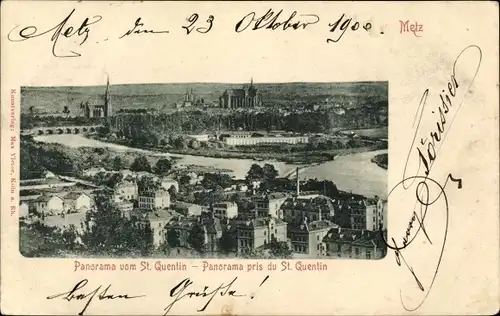 Metz den 23 Oktober 1900.
Metz
Kunstverlag: Max Vivier, Köln a. Rh.
Panorama vom St. Quentin – Panorama pris du St. Quentin
Besten Grüße!